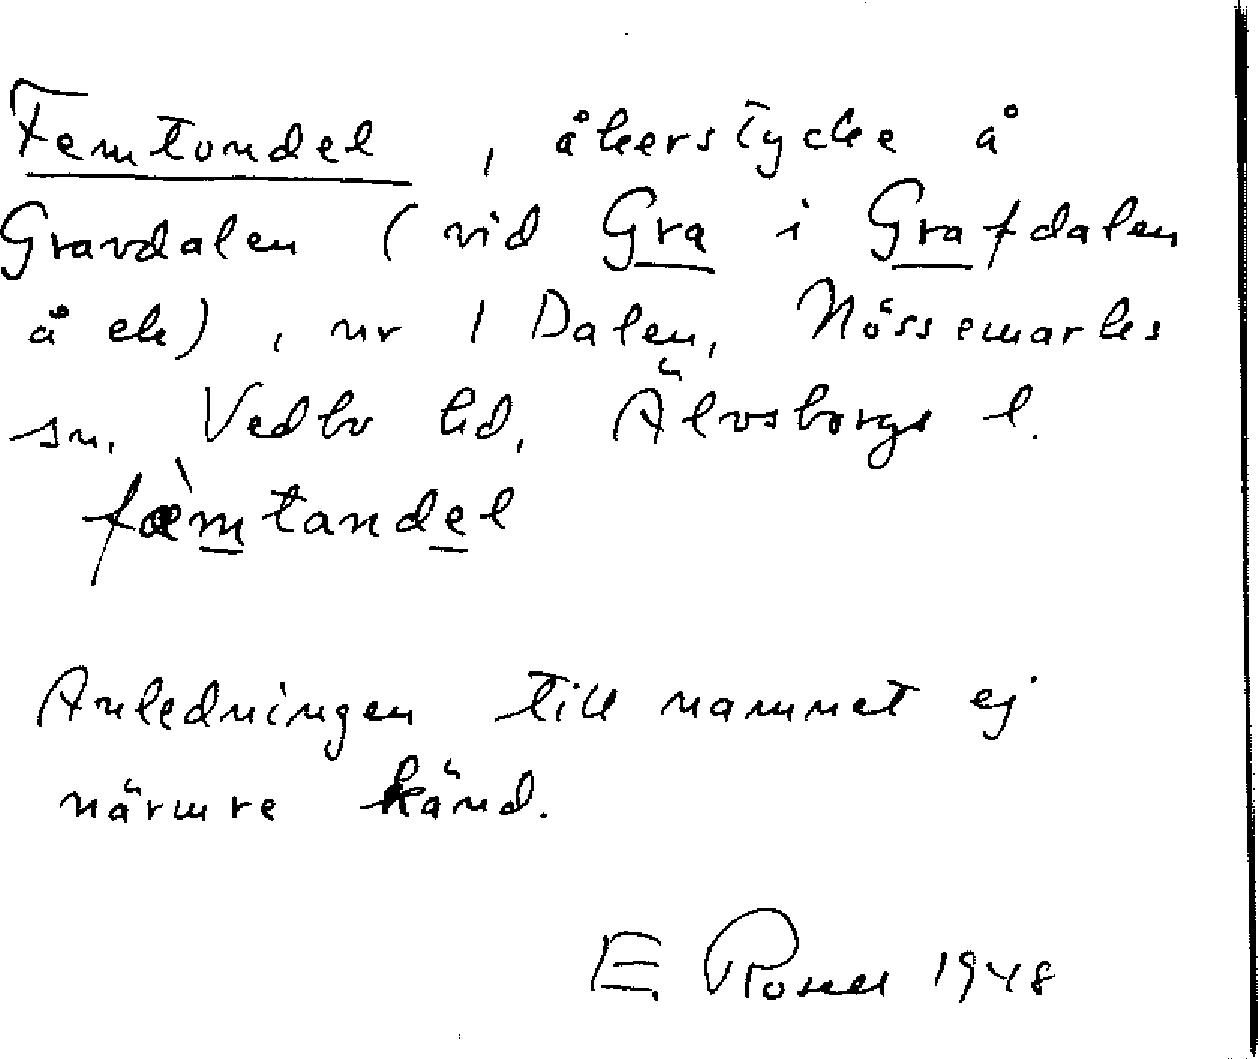 Femtondel, åkerstycke å
Gravdalen (vid Gra i Grafdalen
å ek), nr 1 Dalen, Nössemarks
sn. Vedbo hd, Älvsborgs l.
fæ̀mtandel
Anledningen till namnet ej
närmre känd.
E. Rosell 1948